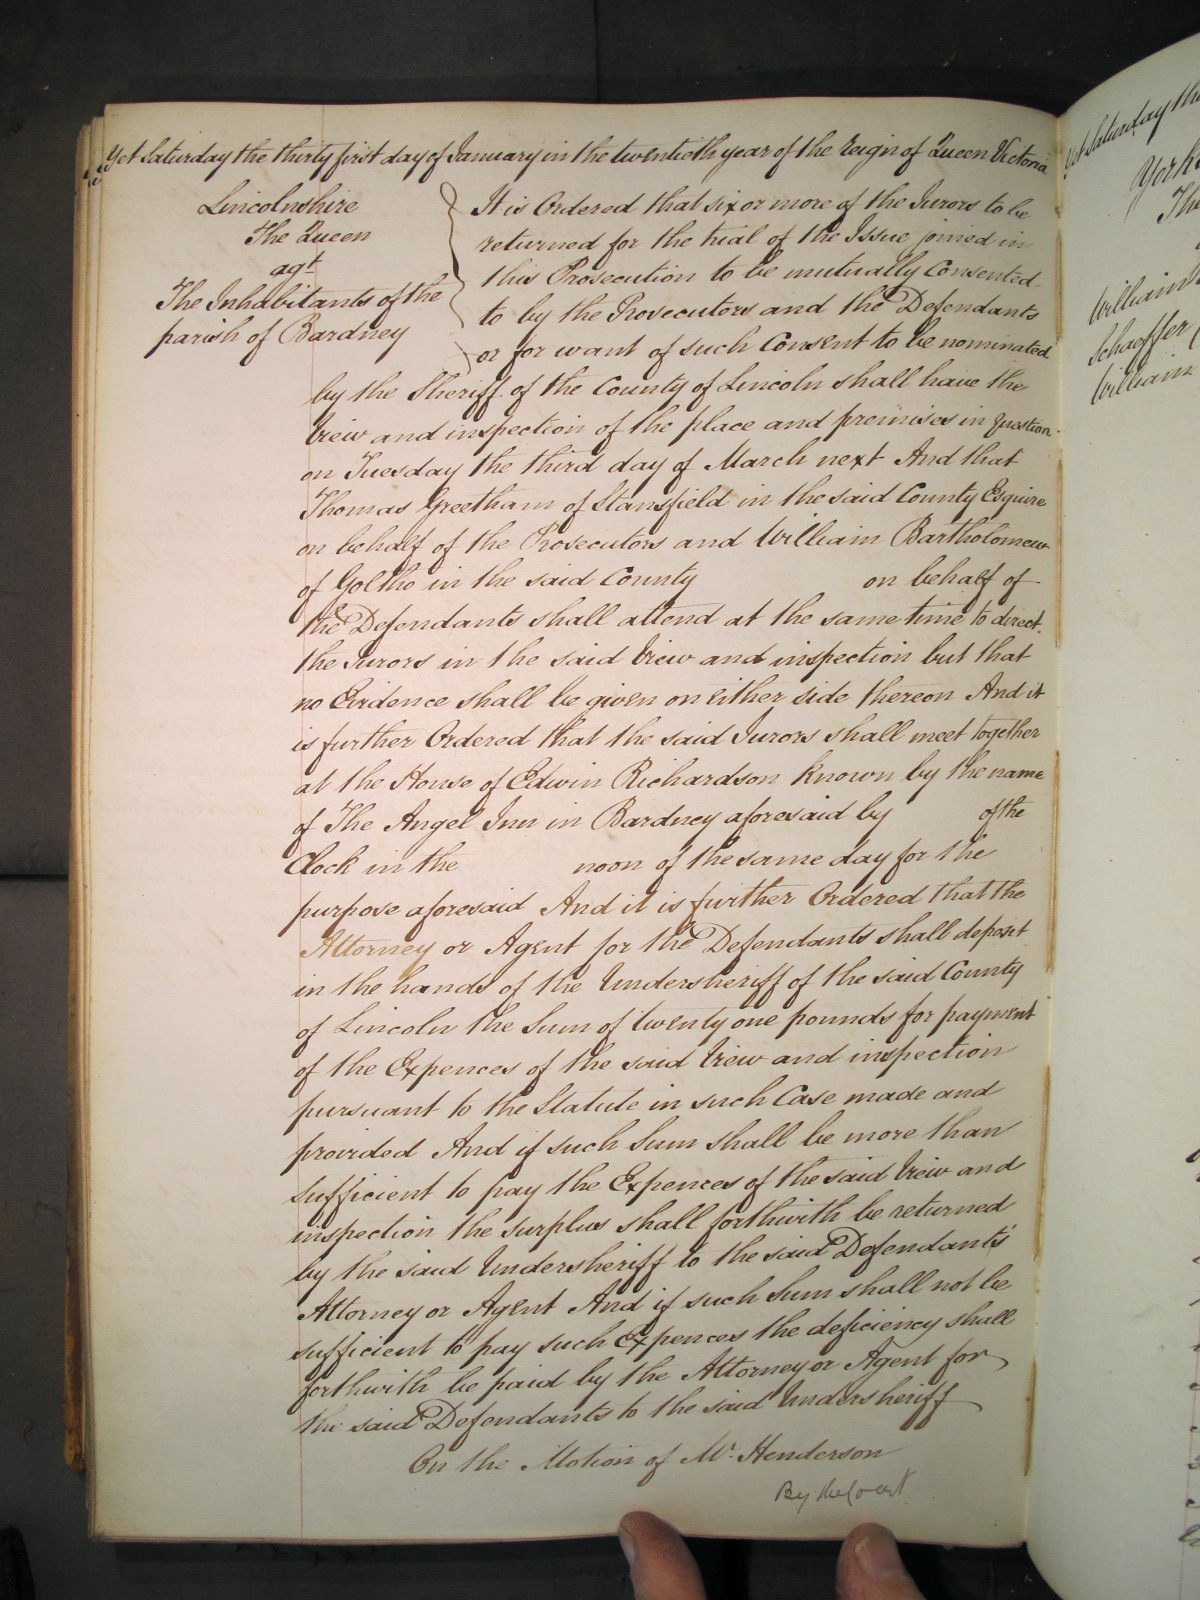 Yet Saturday the thirty first day of January in the twentieth year of the Reign of Queen Victoria
Lincolnshire
The Queen
agt
The Inhabitants of the
parish of Bardney
It is Ordered that six or more of the Jurors to be
returned for the trial of the Issue joined in
this Prosecution to be mutually Consented
to by the Prosecutors and the Defendants
or for want of such Consent to be nominated
by the Sheriff of the County of Lincoln shall have the
View and inspection of the place and premises in question
on Tuesday the third day of March next And that
Thomas Greetham of Stansfield in the said County Esquire
on behalf of the Prosecutors and William Bartholomew
of Goltho in the said County on behalf of
the Defendants shall attend at the same time to direct
the Jurors in the said View and inspection but that
no Evidence shall be given on either side thereon And it
is further Ordered that the said Jurors shall meet together
at the House of Edwin Richardson known by the name
of The Angel Inn in Bardney aforesaid by of the
Clock in the noon of the same day for the
purpose aforesaid And it is further Ordered that the
Attorney or Agent for the Defendants shall deposit
in the hands of the Undersheriff of the said County
of Lincoln the Sum of twenty one pounds for payment
of the Expences of the said View and inspection
pursuant to the Statute in such Case made and
provided And if such Sum shall be more than
sufficient to pay the Expences of the said View and
inspection the surplus shall forthwith be returned
by the said Undersheriff to the said Defendants'
Attorney or Agent And if such Sum shall not be
sufficient to pay such Expences the deficiency shall
forthwith be paid by the Attorney or Agent for
the said Defendants to the said Undersheriff
On the Motion of Mr. Henderson
By the Court
Yet Saturday the
Yorks
The
William
Schaeffer
William